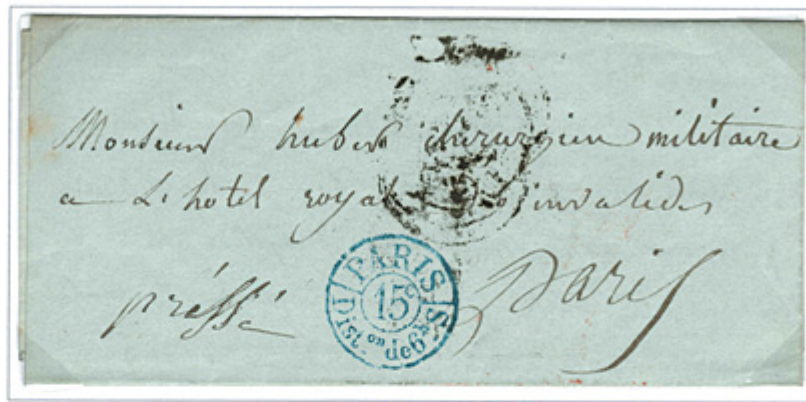 Monsieur huber chirurgien militaire
a L'hotel royal des invalides
préssé
Paris
PARIS
15c
Dist.on de 6h S.